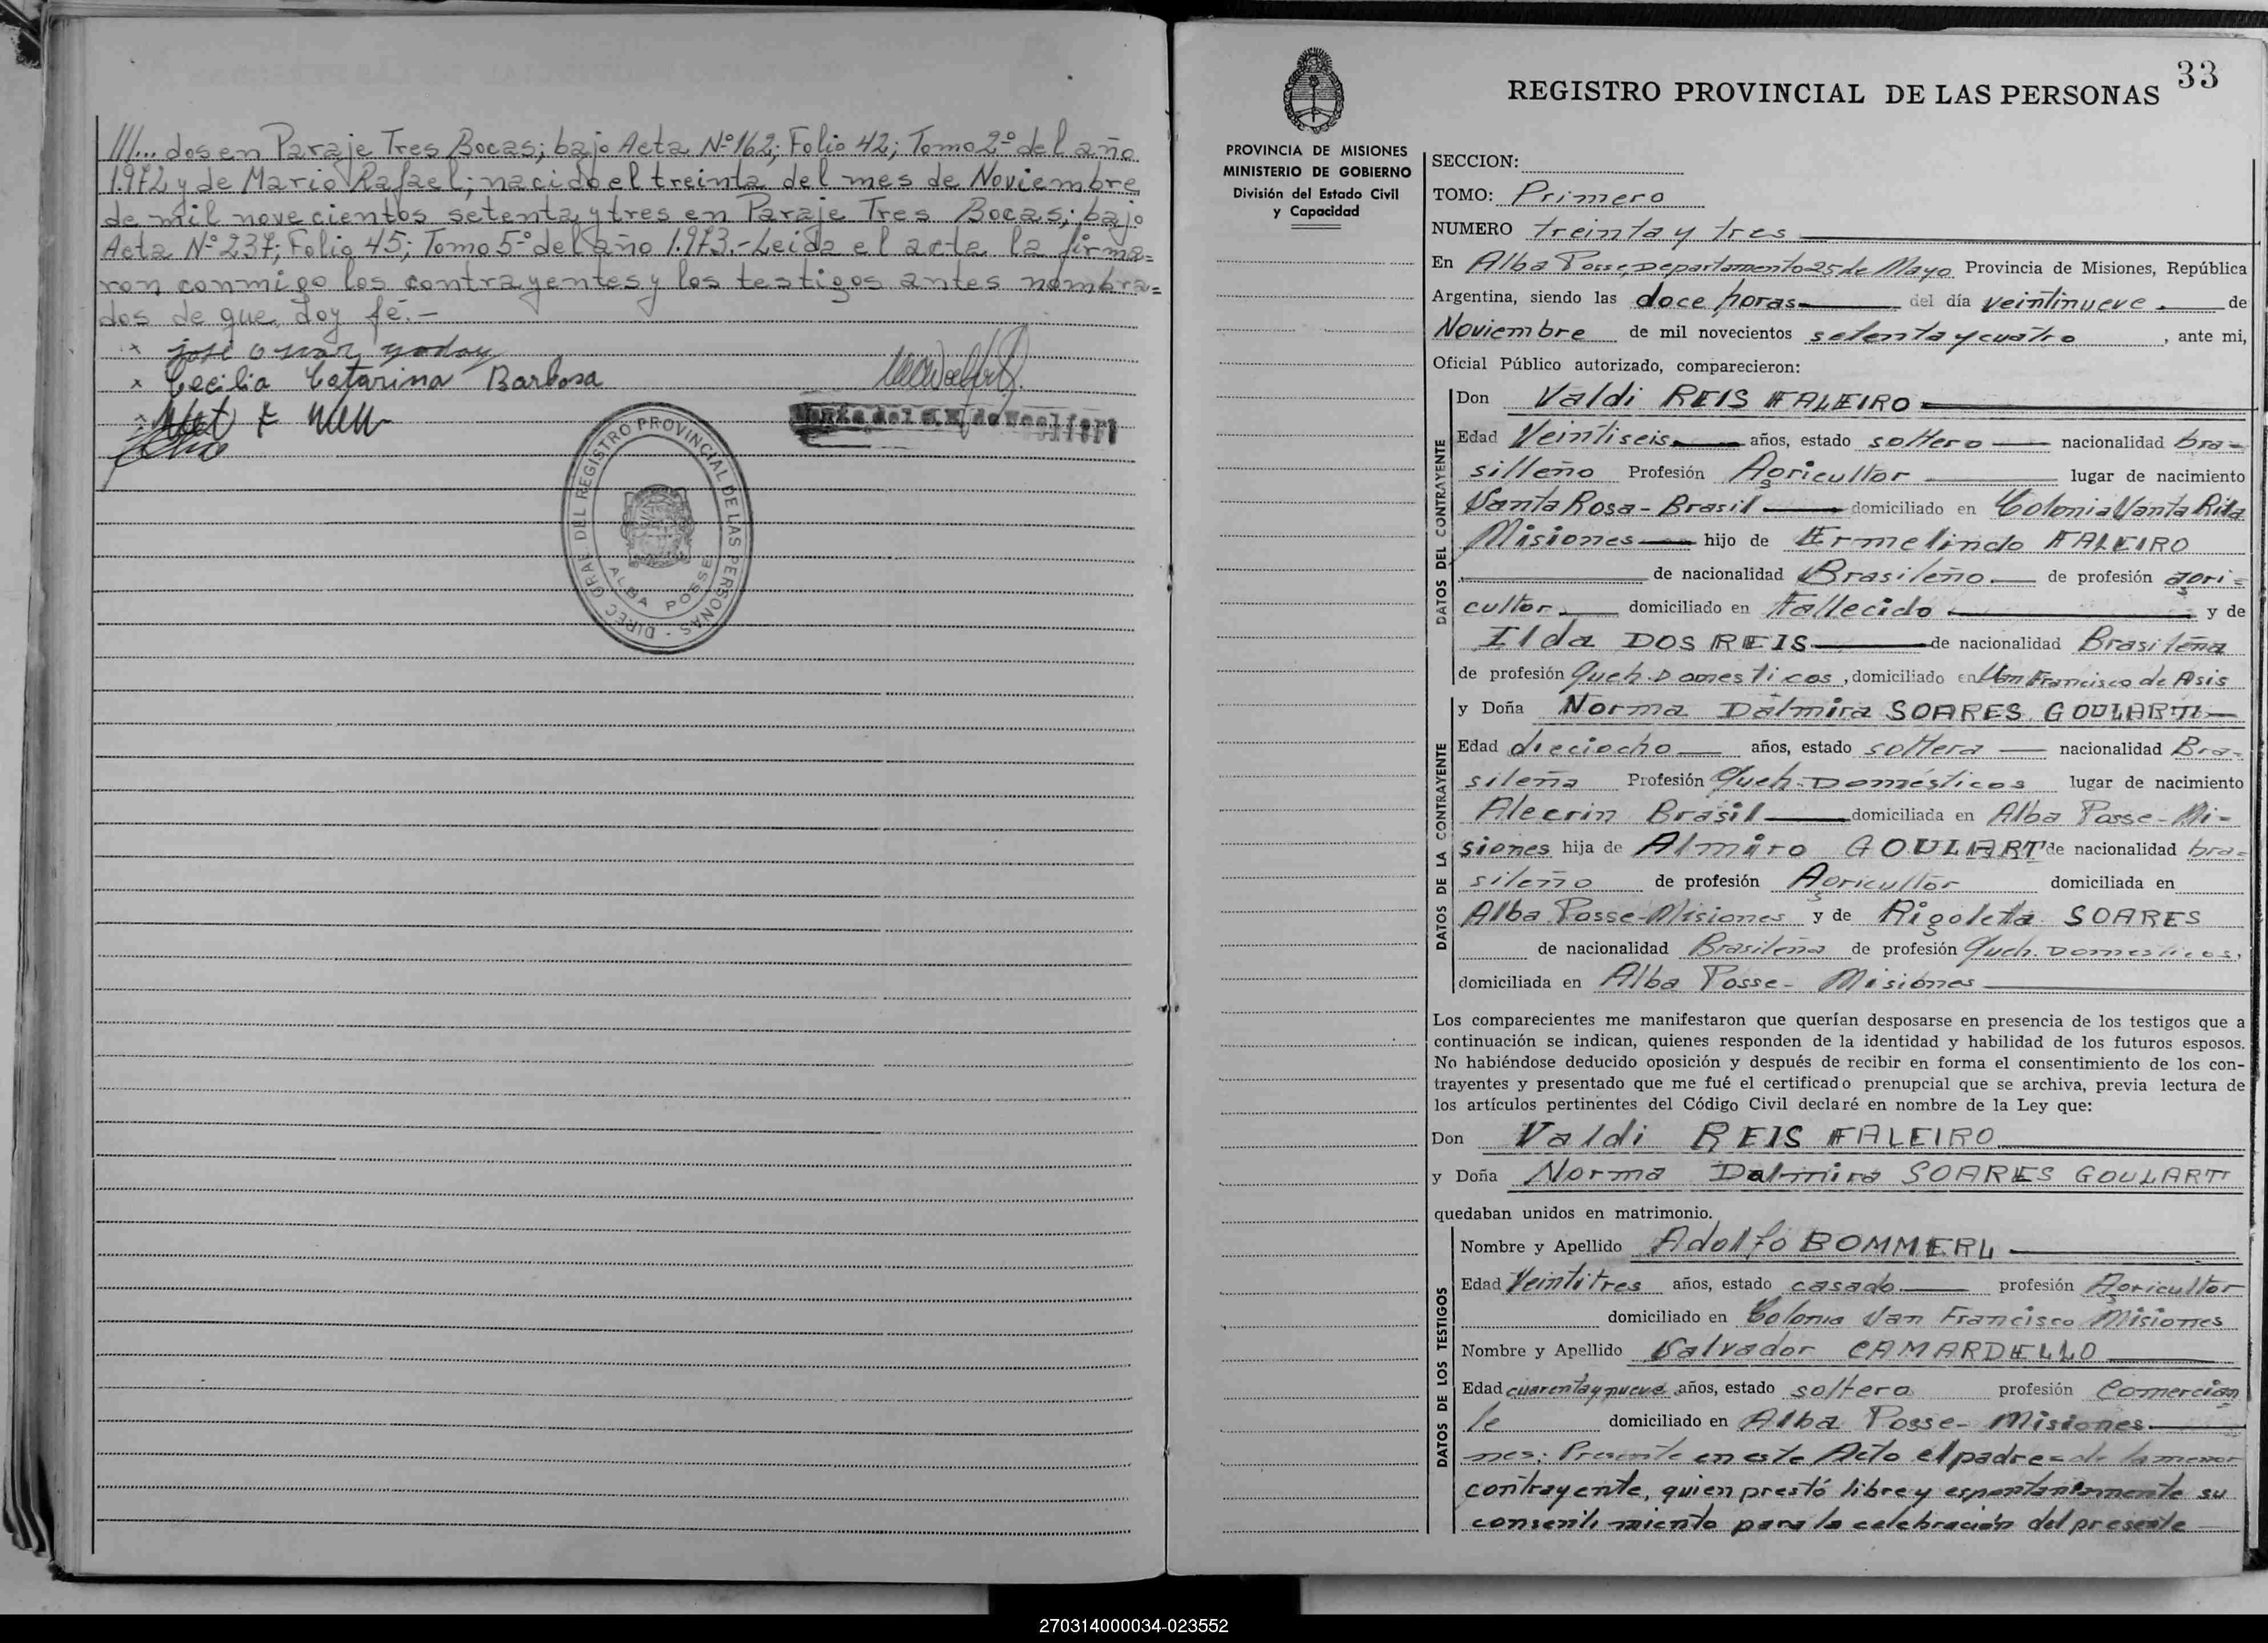 ///... dos en Paraje Tres Bocas; bajo Acta Nº 162; Folio 42; Tomo 2º del año
1.972 y de Mario Rafael; nacido el treinta del mes de Noviembre
de mil novecientos setenta y tres en Paraje Tres Bocas; bajo
Acta Nº 237; Folio 45; Tomo 5º del año 1.973.- Leida el acta la firma=
ron conmigo los contrayentes y los testigos antes nombra=
dos de que doy fé.-
x josé
x Cecilia Catarina Barbosa
DIREC. GRAL. DEL REGISTRO PROVINCIAL DE LAS PERSONAS -
ALBA POSSE
33
REGISTRO PROVINCIAL DE LAS PERSONAS
PROVINCIA DE MISIONES
MINISTERIO DE GOBIERNO
División del Estado Civil
y Capacidad
SECCION:
TOMO: Primero
NUMERO treinta y tres
En Alba Posse, Departamento 25 de Mayo Provincia de Misiones, República
Argentina, siendo las doce horas del día veintinueve de
Noviembre de mil novecientos setenta y cuatro, ante mi,
Oficial Público autorizado, comparecieron:
DATOS DEL CONTRAYENTE
Don Valdi REIS FALEIRO
Edad Veintiseis años, estado soltero nacionalidad bra=
silleño Profesión Agricultor lugar de nacimiento
Santa Rosa - Brasil domiciliado en Colonia Santa Rita
Misiones hijo de Ermelindo FALEIRO
de nacionalidad Brasileño de profesión agri=
cultor domiciliado en Fallecido y de
Ilda DOS REIS de nacionalidad Brasileña
de profesión Queh. Domesticos, domiciliado en San Francisco de Asis
DATOS DE LA CONTRAYENTE
y Doña Norma Dalmira SOARES GOULART
Edad dieciocho años, estado soltera nacionalidad Bra-
sileña Profesión Queh. Domésticos lugar de nacimiento
Alecrin Brasil domiciliada en Alba Posse - Mi=
siones hija de Almiro GOULART de nacionalidad bra=
sileño de profesión Agricultor domiciliada en
Alba Posse - Misiones y de Rigoletta SOARES
de nacionalidad Brasileña de profesión Queh. Domesticos,
domiciliada en Alba Posse - Misiones
Los comparecientes me manifestaron que querían desposarse en presencia de los testigos que a
continuación se indican, quienes responden de la identidad y habilidad de los futuros esposos.
No habiéndose deducido oposición y después de recibir en forma el consentimiento de los con-
trayentes y presentado que me fué el certificado prenupcial que se archiva, previa lectura de
los artículos pertinentes del Código Civil declaré en nombre de la Ley que:
Don Valdi REIS FALEIRO
y Doña Norma Dalmira SOARES GOULART
quedaban unidos en matrimonio.
DATOS DE LOS TESTIGOS
Nombre y Apellido Adolfo BOMMERL
Edad Veintitres años, estado casado profesión Agricultor
domiciliado en Colonia San Francisco Misiones
Nombre y Apellido Salvador CAMARDELLO
Edad cuarenta y nueve años, estado soltero profesión Comercian
te domiciliado en Alba Posse - Misiones
nes: Presente en este Acto el padre de la menor
contrayente, quien prestó libre y espontaneamente su
consentimiento para la celebración del presente
270314000034-023552